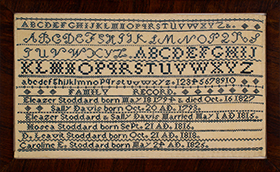 ABCDEFGHIJKLMNOPQRSTUVWXYZ.
ABCDEFGHIJKLMNOPQRS
TUVWXYZ ABCDEFGHIJ
KLMNOPQRSTUVWXYZ
abcdefghijklmnopqrstuvwxyz. 12345678910
FAMILY RECORD.
Eleazer Stoddard born May 18 1794 & died Oct. 16 1827
Sally Davis born Oct. 20 AD. 1793.
Eleazer Stoddard & Sally Davis Married May 1 AD 1815.
Hosea Stoddard born Sept. 21 AD. 1816.
D. Leavit Stoddard born Oct. 21 AD. 1818.
Caroline E. Stoddard born May 24 AD. 1826.